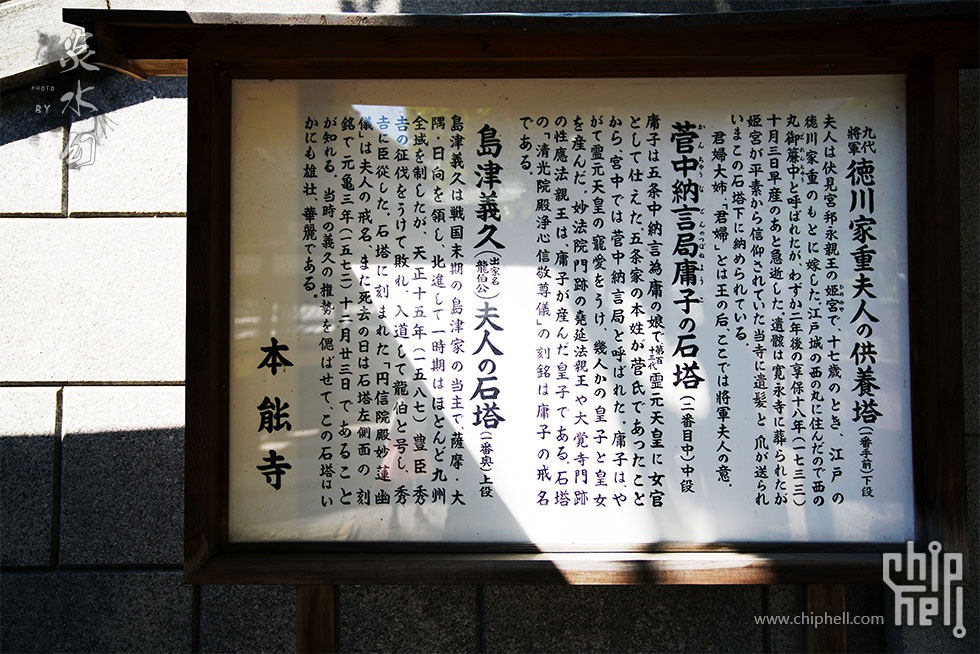 九代将軍 徳川家重夫人の供養塔(一番手前)下段
夫人は伏見宮邦永親王の姫宮で、十七歳のとき、江戸の
徳川家重のもとに嫁した。江戸城の西の丸に住んだので西の
丸御簾中と呼ばれたが、わずか二年後の享保十八年(一七三三)
十月三日早産のあと急逝した。遺骸は寛永寺に葬られたが
姫宮が平素から信仰されていた当寺に遺髪と爪が送られ
いまこの石塔下に納められている。
君婦大姉、「君婦」とは王の后、ここでは将軍夫人の意。
菅中納言局庸子の石塔(二番目中)中段
庸子は五条中納言為庸の娘で第百十二代霊元天皇に女官
として仕えた。五条家の本姓が菅氏であったこと
から、宮中では菅中納言局と呼ばれた。庸子は、や
がて霊元天皇の寵愛をうけ、幾人かの皇子と皇女
を産んだ。妙法院門跡の堯延法親王や大覚寺門跡
の性應法親王は、庸子が産んだ皇子である。石塔
の「清光院殿浄心信敬尊儀」の刻銘は庸子の戒名
である。
島津義久(出家名龍伯公)夫人の石塔(一番奥)上段
島津義久は戦国末期の島津家の当主で、薩摩・大
隅・日向を領し、北進して一時期はほとんど九州
全域を制したが、天正十五年(一五八七)豊臣秀
吉の征伐をうけて敗れ、入道して龍伯と号し、秀
吉に臣従した。石塔に刻まれた「円信院殿妙蓮幽
儀」は夫人の戒名、また死去の日は石塔左側面の刻
銘で元亀三年(一五七二)十二月廿三日であること
が知れる。当時の義久の権勢を偲ばせて、この石塔はい
かにも雄壮、華麗である。
本能寺
炎水句
PHOTO
BY
chip
hell
www.chiphell.com